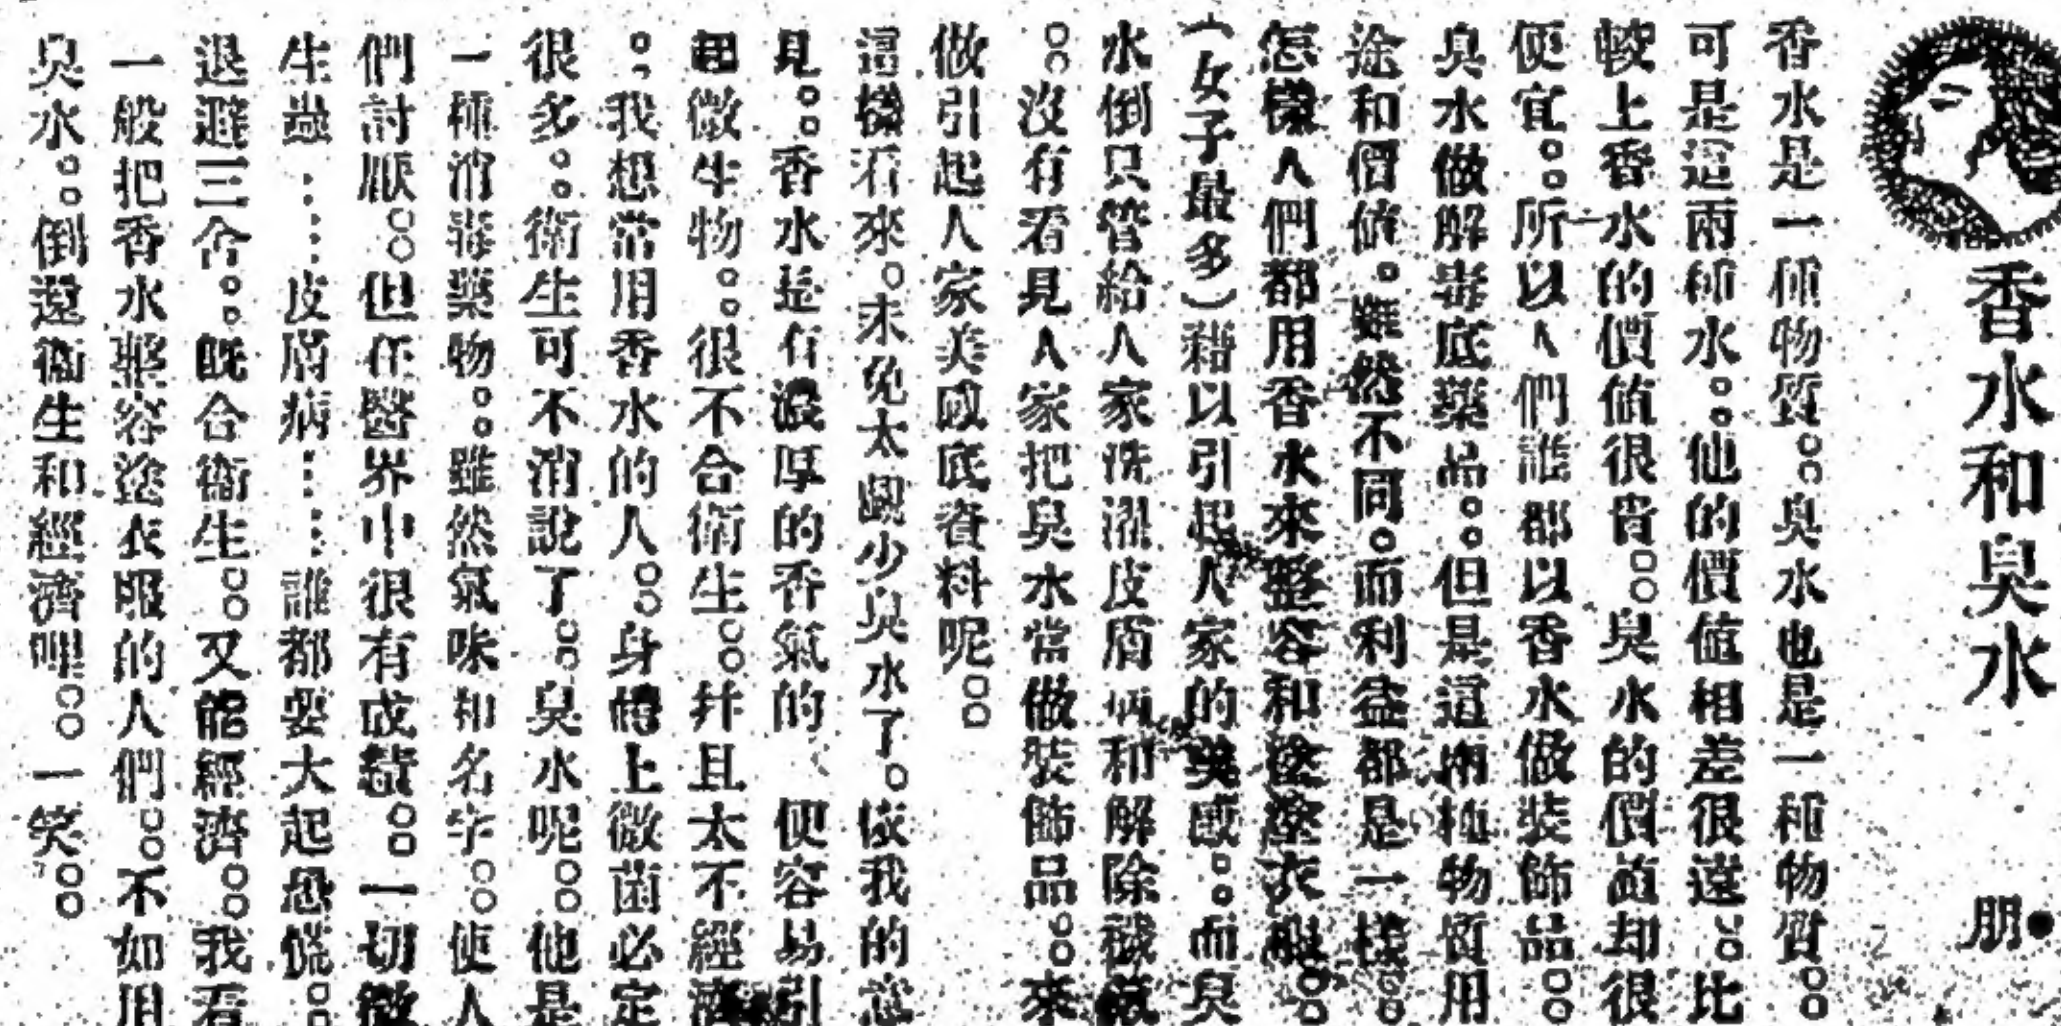 香水和臭水
朋
香水是一種物質。。臭水也是一種物質。。
可是這兩種水。。他的價值相差很遠。。比
較上香水的價值很貴。。臭水的價值却很
便宜。。所以人們誰都以香水做裝飾品。。
臭水做解毒底藥品。。但是這兩種物質用
途和價值。雖然不同。而利益都是一樣。。
怎樣人們都用香水來整容和塗衣服。。
(女子最多)藉以引起人家的美感。。而臭
水倒只管給人家洗濯皮膚病和解除穢氣
。。沒有看見人家把臭水當做裝飾品。。來
做引起人家美感底資料呢。。
這樣看來。未免太鄙少臭水了。依我的意
見。。香水是有濃厚的香氣的 便容易引
起微生物。。很不合衛生。。幷且太不經濟
。。我想常用香水的人。。身體上微菌必定
很多。。衛生可不消說了。。臭水呢。。他是
一種消毒藥物。。雖然氣味和名字。。使人
們討厭。。但在醫界中很有成績。。一切微
生蟲……皮膚病……誰都要大起恐慌。。
退避三舍。。既合衛生。。又能經濟。。我看
一般把香水整容塗衣服的人們。。不如用
臭水。。倒還衛生和經濟哩。。一笑。。